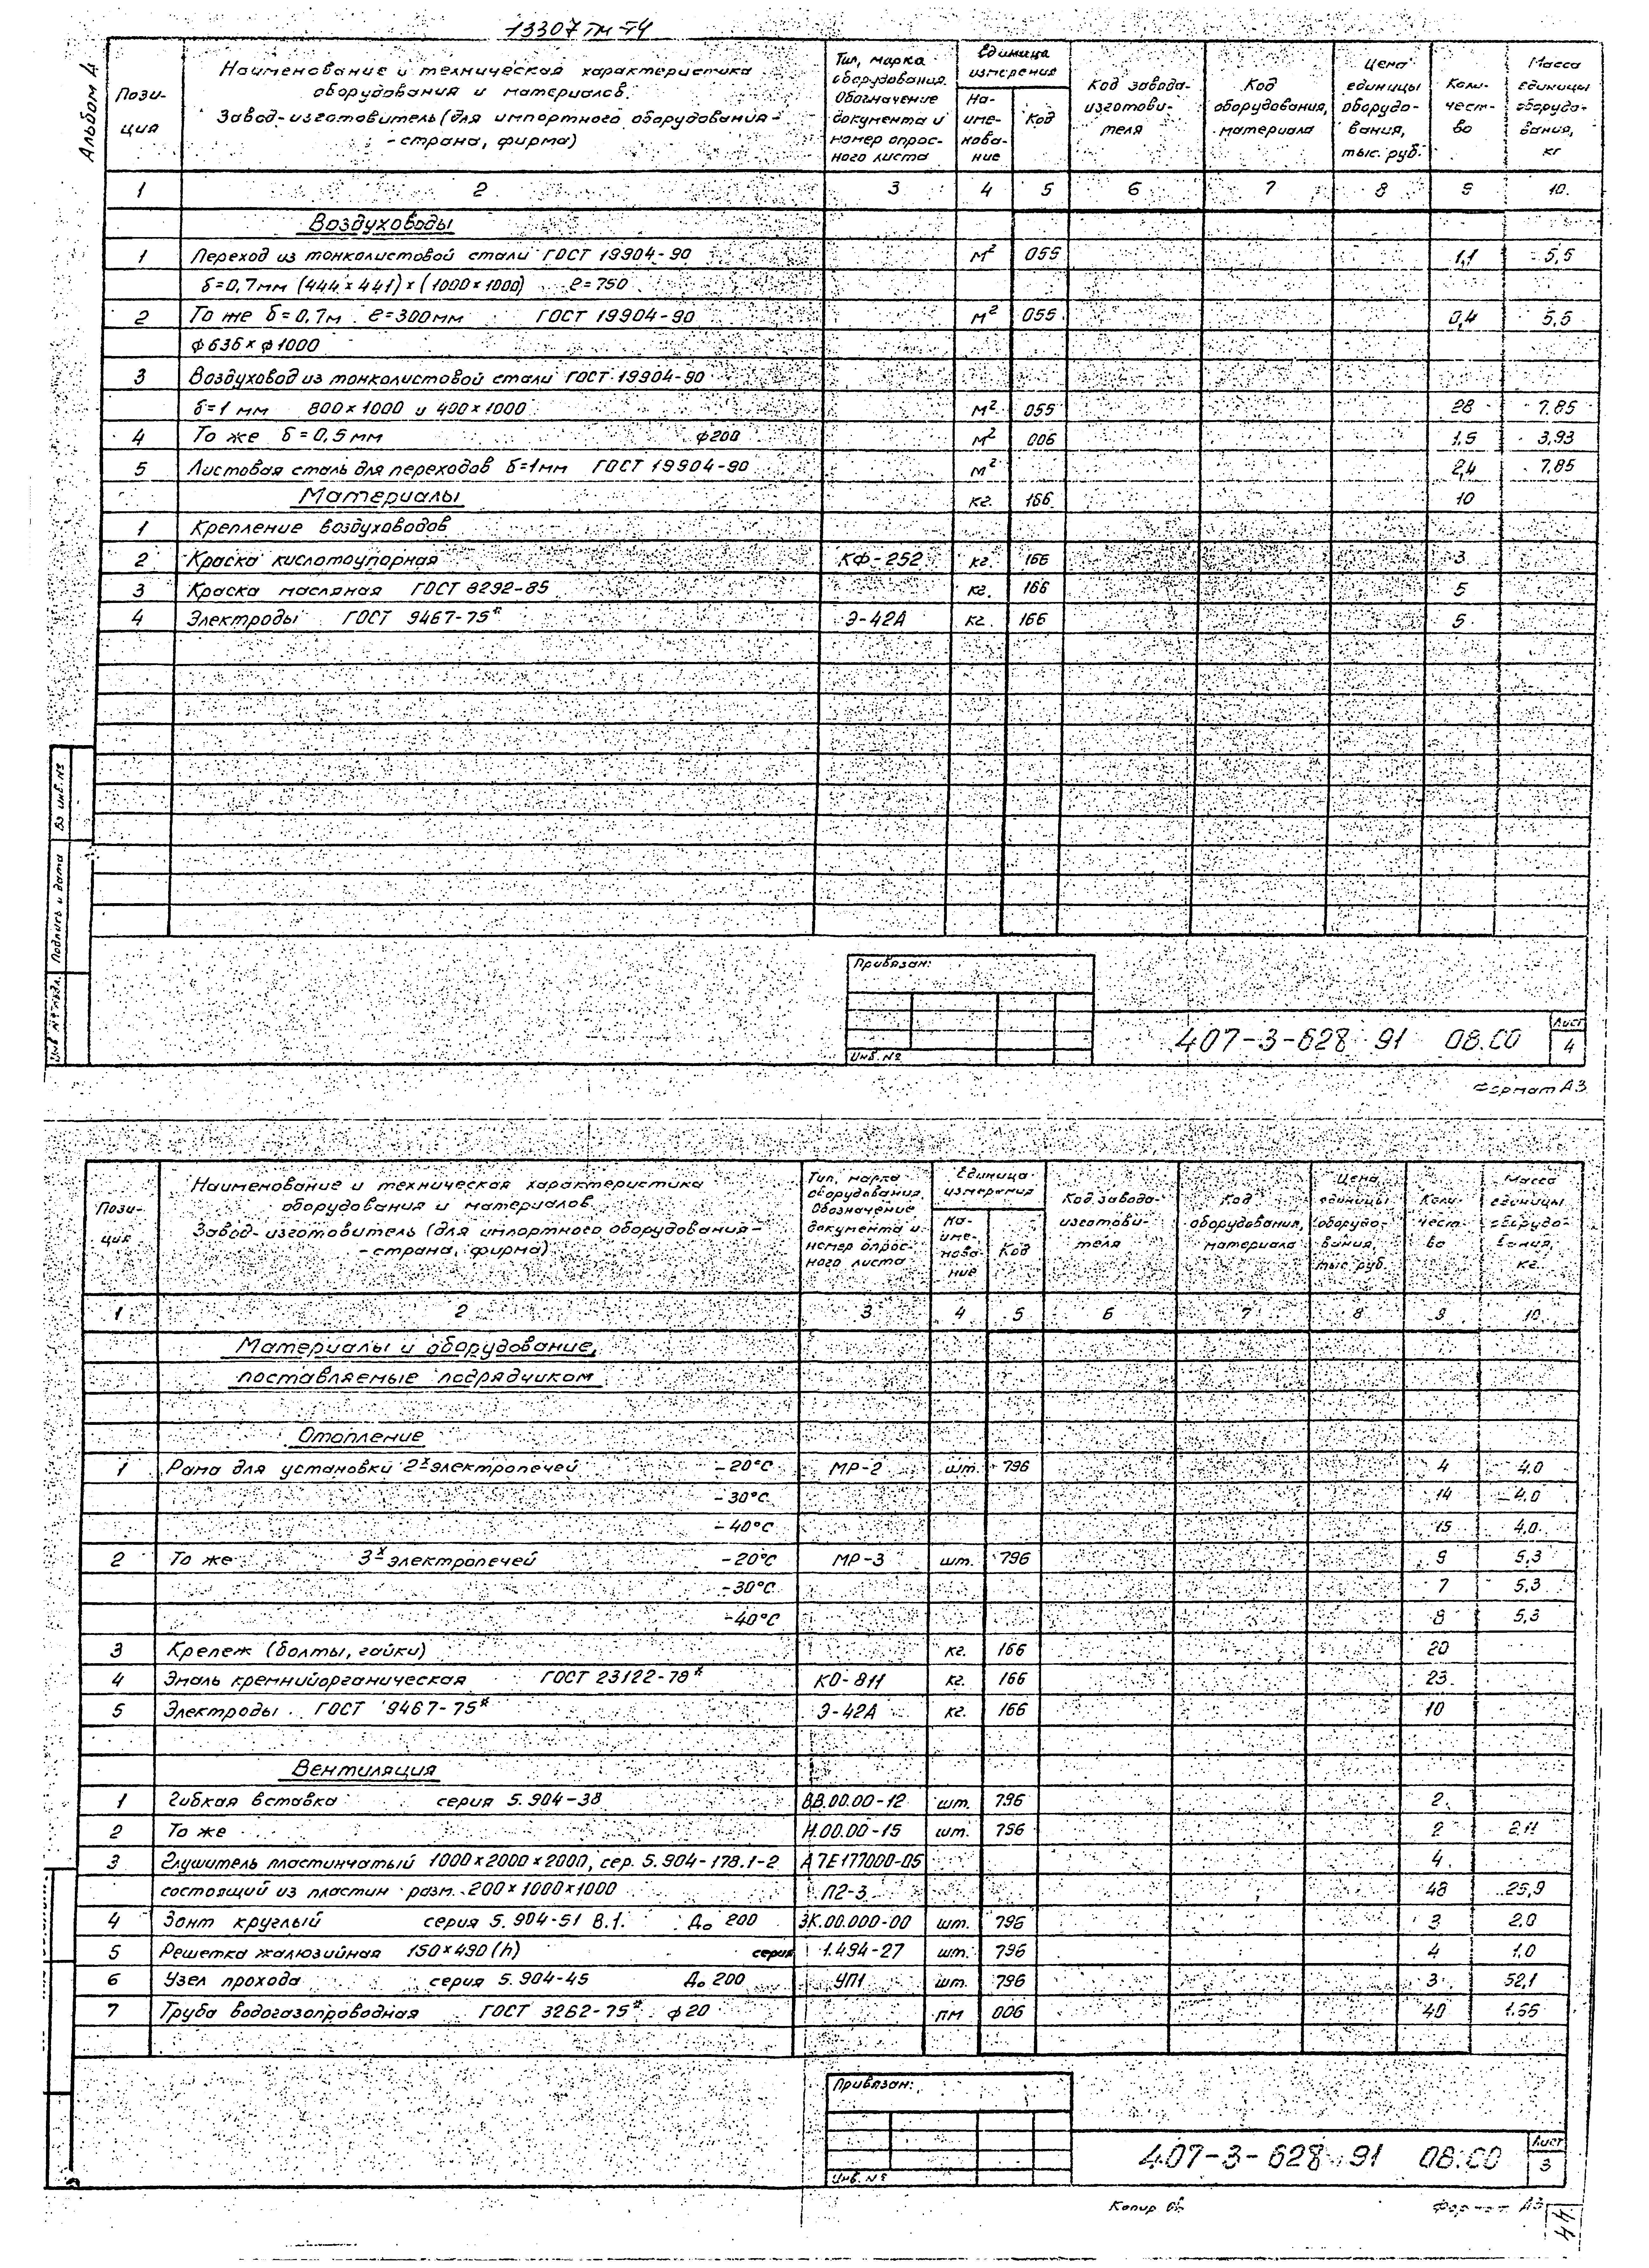 13307тм-т4
Альбом 4
Пози-
ция
Наименование и техническая характеристика
оборудования и материалов.
Завод-изготовитель (для импортного оборудования-
-страна, фирма)
Тип, марка
оборудования.
Обозначение
документа и
номер опрос-
ного листа
Единица
измерения
На-
име-
нова-
ние
Код
Код завода-
изготови-
теля
Код
оборудования,
материала
Цена
единицы
оборудо-
вания,
тыс. руб.
Коли-
чест-
во
Масса
единицы
оборудо-
вания,
кг
1 2 3 4 5 6 7 8 9 10
Воздуховоды
1 Переход из тонколистовой стали ГОСТ 19904-90 м² 055 1,1 5,5
δ=0,7мм (444×441)×(1000×1000) ℓ=750
2 То же δ=0,7м ℓ=300мм ГОСТ 19904-90 м² 055 0,4 5,5
ф636×ф1000
3 Воздуховод из тонколистовой стали ГОСТ 19904-90
δ=1 мм 800×1000 и 400×1000 м² 055 28 7.85
4 То же δ=0,5мм ф200 м² 006 1,5 3,93
5 Листовая сталь для переходов δ=1мм ГОСТ 19904-90 м² 2,4 7,85
Материалы кг. 166 10
1 Крепление воздуховодов
2 Краска кислотоупорная КФ-252 кг. 166 3
3 Краска масляная ГОСТ 8292-85 кг. 166 5
4 Электроды ГОСТ 9467-75* Э-42А кг 166 5
Вз инв. №
Подпись и дата
Инв № подл.
Привязан:
Инв. №
407-3-628 91 08.СО
Лист
4
Формат А3
Пози-
ция
Наименование и техническая характеристика
оборудования и материалов
Завод-изготовитель (для импортного оборудования-
-страна, фирма)
Тип, марка
оборудования.
Обозначение
документа и
номер опрос-
ного листа
Единица
измерения
На-
име-
нова-
ние
Код
Код завода-
изготови-
теля
Код
оборудования,
материала
Цена
единицы
оборудо-
вания,
тыс. руб.
Коли-
чест-
во
Масса
единицы
оборудо-
вания,
кг.
1 2 3 4 5 6 7 8 9 10
Материалы и оборудование,
поставляемые подрядчиком
Отопление
1 Рама для установки 2х электропечей -20°С МР-2 шт. 796 4 4.0
-30°С 14 4,0
-40°С 15 4,0
2 То же 3х электропечей -20°С МР-3 шт. 796 9 5,3
-30°С 7 5,3
-40°С 8 5,3
3 Крепеж (болты, гайки) кг. 166 20
4 Эмаль кремнийорганическая ГОСТ 23122-78* КО-811 кг. 166 23
5 Электроды ГОСТ 9467-75* Э-42А кг. 166 10
Вентиляция
1 Гибкая вставка серия 5.904-38 ВВ.00.00-12 шт. 796 2
2 То же Н.00.00-15 шт. 796 2 2,11
3 Глушитель пластинчатый 1000×2000×2000, сер. 5.904-178.1-2 А7Е177000-05 4
состоящий из пластин разм. 200×1000×1000 П2-3 48 25,9
4 Зонт круглый серия 5.904-51 В.1. До 200 ЗК.00.000-00 шт. 796 3 2,0
5 Решетка жалюзийная 150×490(h) серия 1.494-27 шт. 796 4 1,0
6 Узел прохода серия 5.904-45 До 200 УП1 шт. 796 3 52,1
7 Труба водогазопроводная ГОСТ 3262-75* ф20 пм 006 40 1.66
Привязан:
Инв. №
407-3-628 91 08.СО
Лист
3
Копир
Формат А3
44